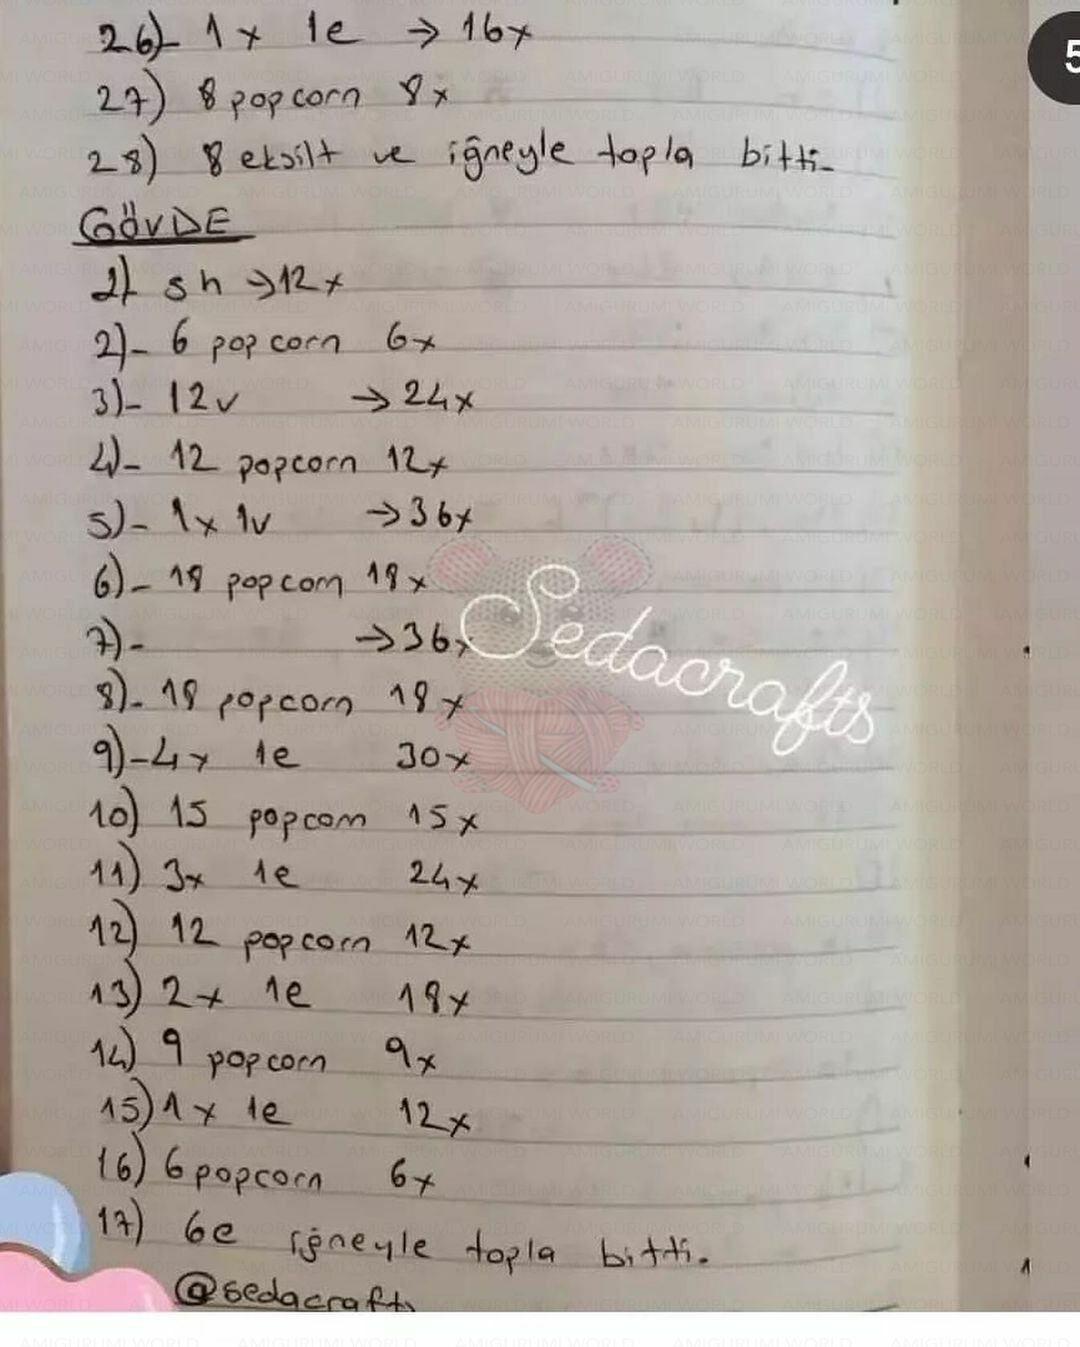 26)- 1x 1e → 16x
27) 8 popcorn 8x
28) 8 eksilt ve iğneyle topla bitti-
GÖVDE
1) sh → 12x
2)- 6 popcorn 6x
3)- 12v → 24x
4)- 12 popcorn 12x
5)- 1x 1v → 36x
6)- 18 popcorn 18x
7)- → 36x
8)- 18 popcorn 18x
9)- 4x 1e 30x
10) 15 popcorn 15x
11) 3x 1e 24x
12) 12 popcorn 12x
13) 2x 1e 18x
14) 9 popcorn 9x
15) 1x 1e 12x
16) 6 popcorn 6x
17) 6e iğneyle topla bitti.
@sedacrafts
Sedacrafts
5
AMIGURUMI WORLD